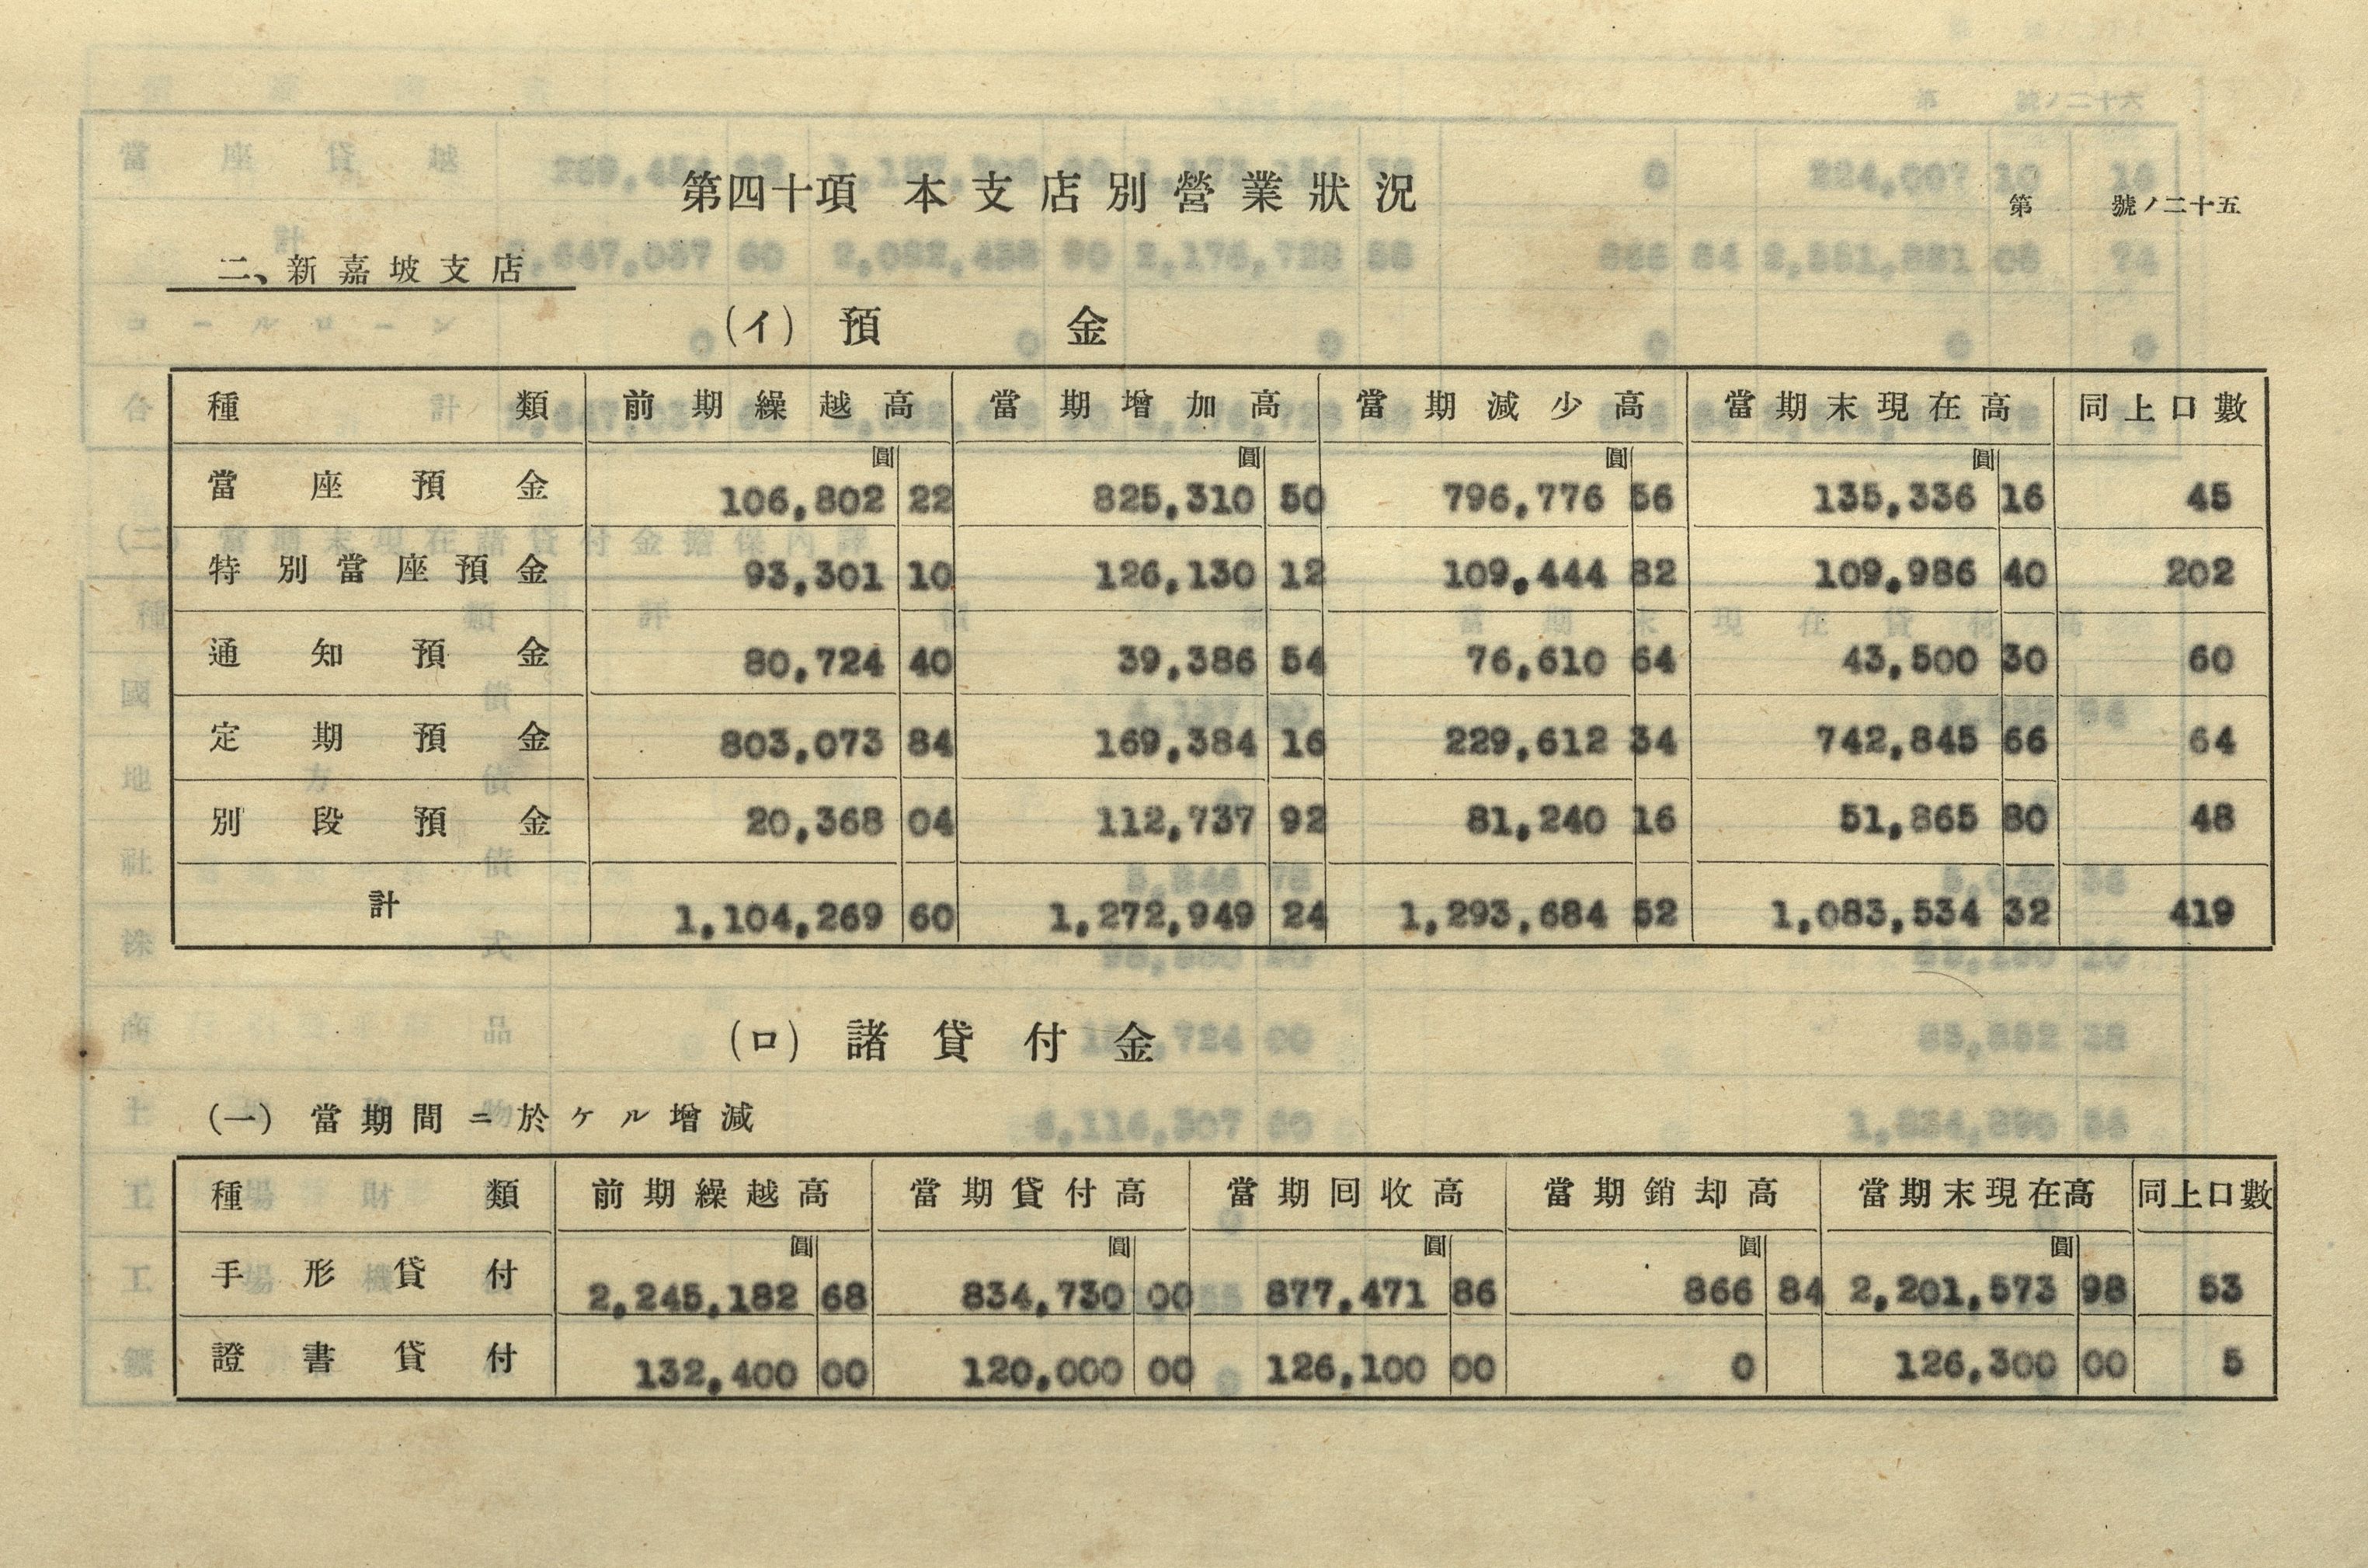 第四十項 本支店別營業狀況
第 號ノ二十五
二、新嘉坡支店
(イ) 預金
種類 前期繰越高 當期增加高 當期減少高 當期末現在高 同上口數
圓 圓 圓 圓
當座預金 106,802 22 825,310 50 796,776 56 135,336 16 45
特別當座預金 93,301 10 126,130 12 109,444 82 109,986 40 202
通知預金 80,724 40 39,386 54 76,610 64 43,500 30 60
定期預金 803,073 84 169,384 16 229,612 34 742,845 66 64
別段預金 20,368 04 112,737 92 81,240 16 51,865 80 48
計 1,104,269 60 1,272,949 24 1,293,684 52 1,083,534 32 419
(ロ) 諸貸付金
(一) 當期間ニ於ケル增減
種類 前期繰越高 當期貸付高 當期囘收高 當期銷却高 當期末現在高 同上口數
圓 圓 圓 圓 圓
手形貸付 2,245,182 68 834,730 00 877,471 86 866 84 2,201,573 98 53
證書貸付 132,400 00 120,000 00 126,100 00 0 126,300 00 5